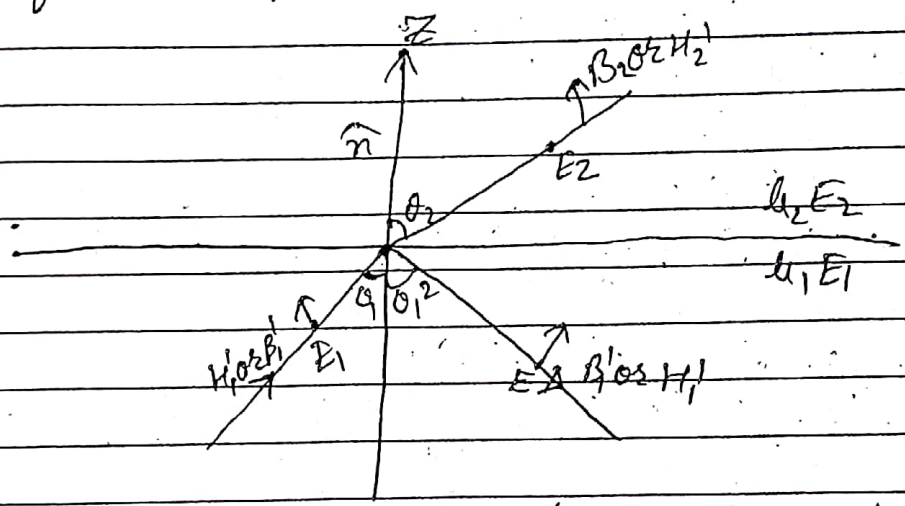 Z
B₂ or H₂'
n̂
E2
θ₂
μ₂ E₂
μ₁ E₁
θ₁ θ₁2
H₁' or B₁'
E₁
B₁' or H₁'